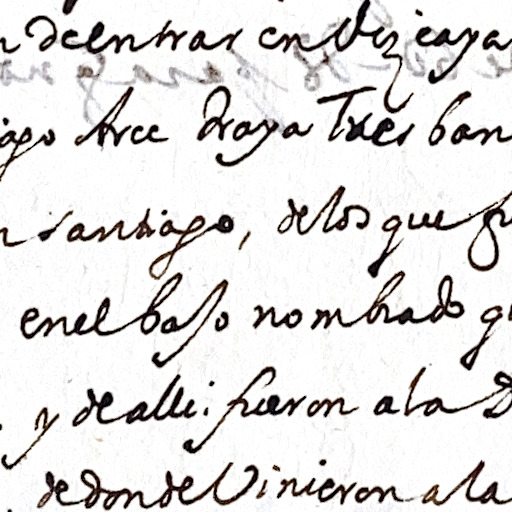 n de entrar en Vizcaya
iago Arce Araya Tres ban
n santiago, delos que fu
enel baso nombrado g
y de alli fueron a la D
de donde Vinieron a la